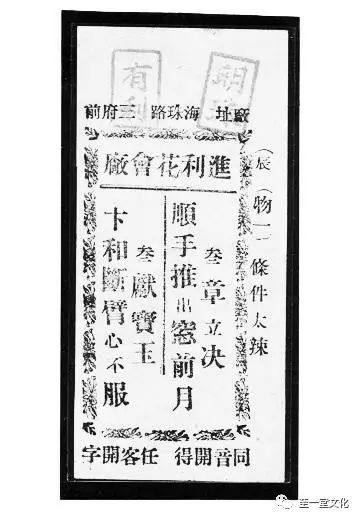 有利
廠址 海珠路 三府前
進利花會廠
（辰（物一）條件太辣
叁章立决
順手推出窓前月
叁獻寶王
卞和斷臂心不服
同音開得 任客開字
至一堂文化